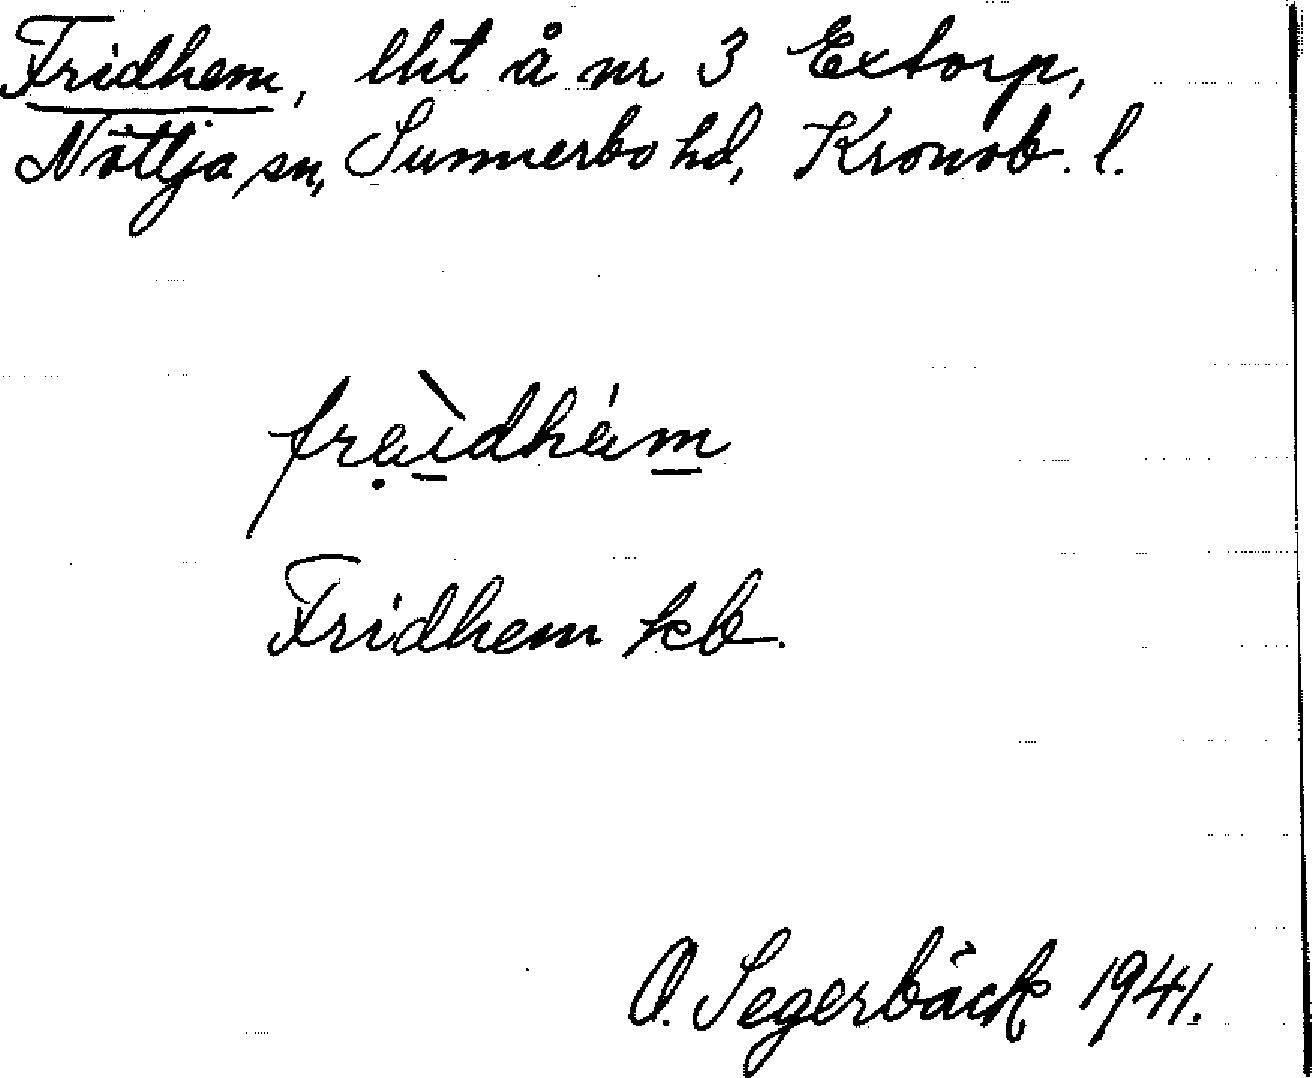 Fridhem, lht å nr 3 Extorp,
Nöttja sn, Sunnerbo hd, Kronob. l.
fraìdhém
Fridhem kb.
O. Segerbäck 1941.